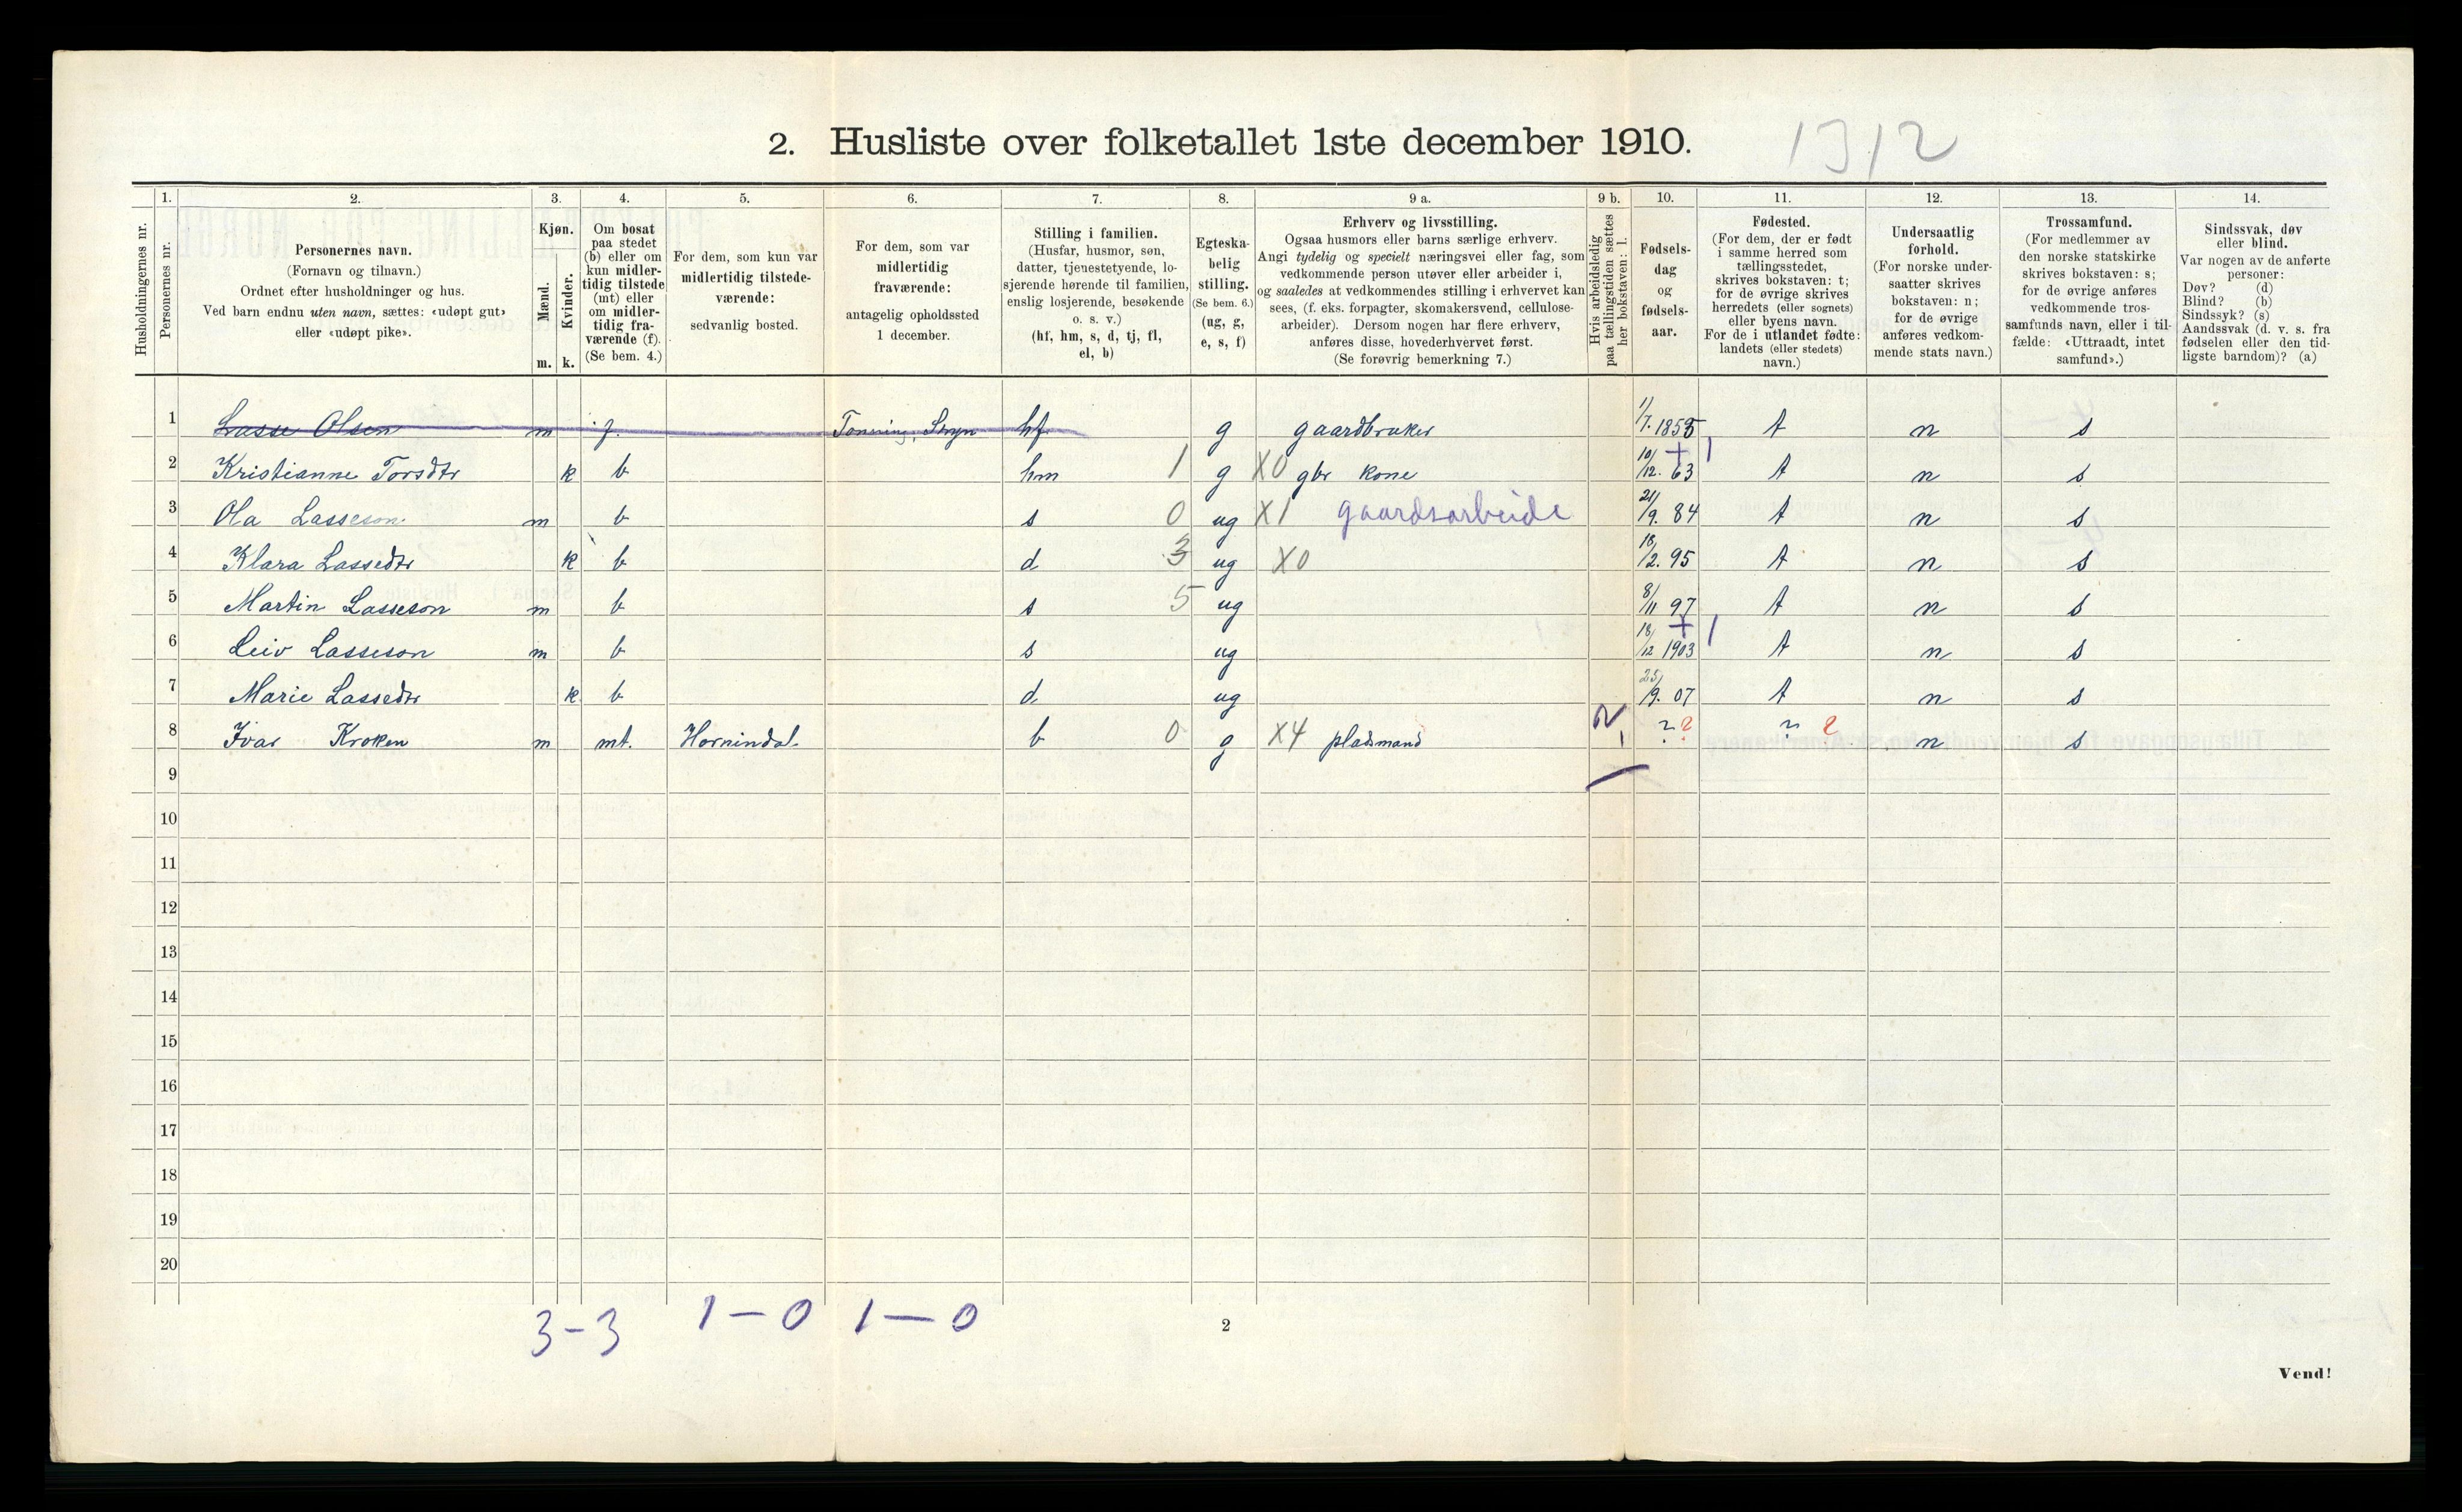 2. Husliste over folketallet 1ste december 1910. 1312
Husholdningernes nr.
1. Personernes nr.
2. Personernes navn.
(Fornavn og tilnavn.)
Ordnet efter husholdninger og hus.
Ved barn endnu uten navn, sættes: «udøpt gut»
eller «udøpt pike».
3. Kjøn.
Mænd. m.
Kvinder. k.
4. Om bosat
paa stedet
(b) eller om
kun midler-
tidig tilstede
(mt) eller
om midler-
tidig fra-
værende (f).
(Se bem. 4.)
5. For dem, som kun var
midlertidig tilstede-
værende:
sedvanlig bosted.
6. For dem, som var
midlertidig
fraværende:
antagelig opholdssted
1 december.
7. Stilling i familien.
(Husfar, husmor, søn,
datter, tjenestetyende, lo-
sjerende hørende til familien,
enslig losjerende, besøkende
o. s. v.)
(hf, hm, s, d, tj, fl,
el, b)
8. Egteska-
belig
stilling.
(Se bem. 6.)
(ug, g,
e, s, f)
9 a. Erhverv og livsstilling.
Ogsaa husmors eller barns særlige erhverv.
Angi tydelig og specielt næringsvei eller fag, som
vedkommende person utøver eller arbeider i,
og saaledes at vedkommendes stilling i erhvervet kan
sees, (f. eks. forpagter, skomakersvend, cellulose-
arbeider). Dersom nogen har flere erhverv,
anføres disse, hovederhvervet først.
(Se forøvrig bemerkning 7.)
9 b. Hvis arbeidsledig
paa tællingstiden sættes
her bokstaven: l.
10. Fødsels-
dag
og
fødsels-
aar.
11. Fødested.
(For dem, der er født
i samme herred som
tællingsstedet,
skrives bokstaven: t;
for de øvrige skrives
herredets (eller sognets)
eller byens navn.
For de i utlandet fødte:
landets (eller stedets)
navn.)
12. Undersaatlig
forhold.
(For norske under-
saatter skrives
bokstaven: n;
for de øvrige
anføres vedkom-
mende stats navn.)
13. Trossamfund.
(For medlemmer av
den norske statskirke
skrives bokstaven: s;
for de øvrige anføres
vedkommende tros-
samfunds navn, eller i til-
fælde: «Uttraadt, intet
samfund».)
14. Sindssvak, døv
eller blind.
Var nogen av de anførte
personer:
Døv? (d)
Blind? (b)
Sindssyk? (s)
Aandssvak (d. v. s. fra
fødselen eller den tid-
ligste barndom)? (a)
1 Lasse Olsen m f. Tonning, Stryn hf g gaardbruker 1/7. 1858 t n s
2 Kristianne Torsdtr k b hm 1 g X0 gbr kone 10/12. 63 + 1 t n s
3 Ola Lasseson m b s 0 ug X1 gaardsarbeide 21/9. 84 t n s
4 Klara Lassedtr k b d 3 ug X0 18/2. 95 t n s
5 Martin Lasseson m b s 5 ug 8/11 97 t n s
6 Leiv Lasseson m b s ug 18/12 1903 + 1 t n s
7 Marie Lassedtr k b d ug 25/9. 07 t n s
8 Ivar Kroken m mt. Hornindal. b 0 g X4 pladsmand ? ? ? ? n s
9
10
11
12
13
14
15
16
17
18
19
20
3-3 1-0 1-0
2
Vend!